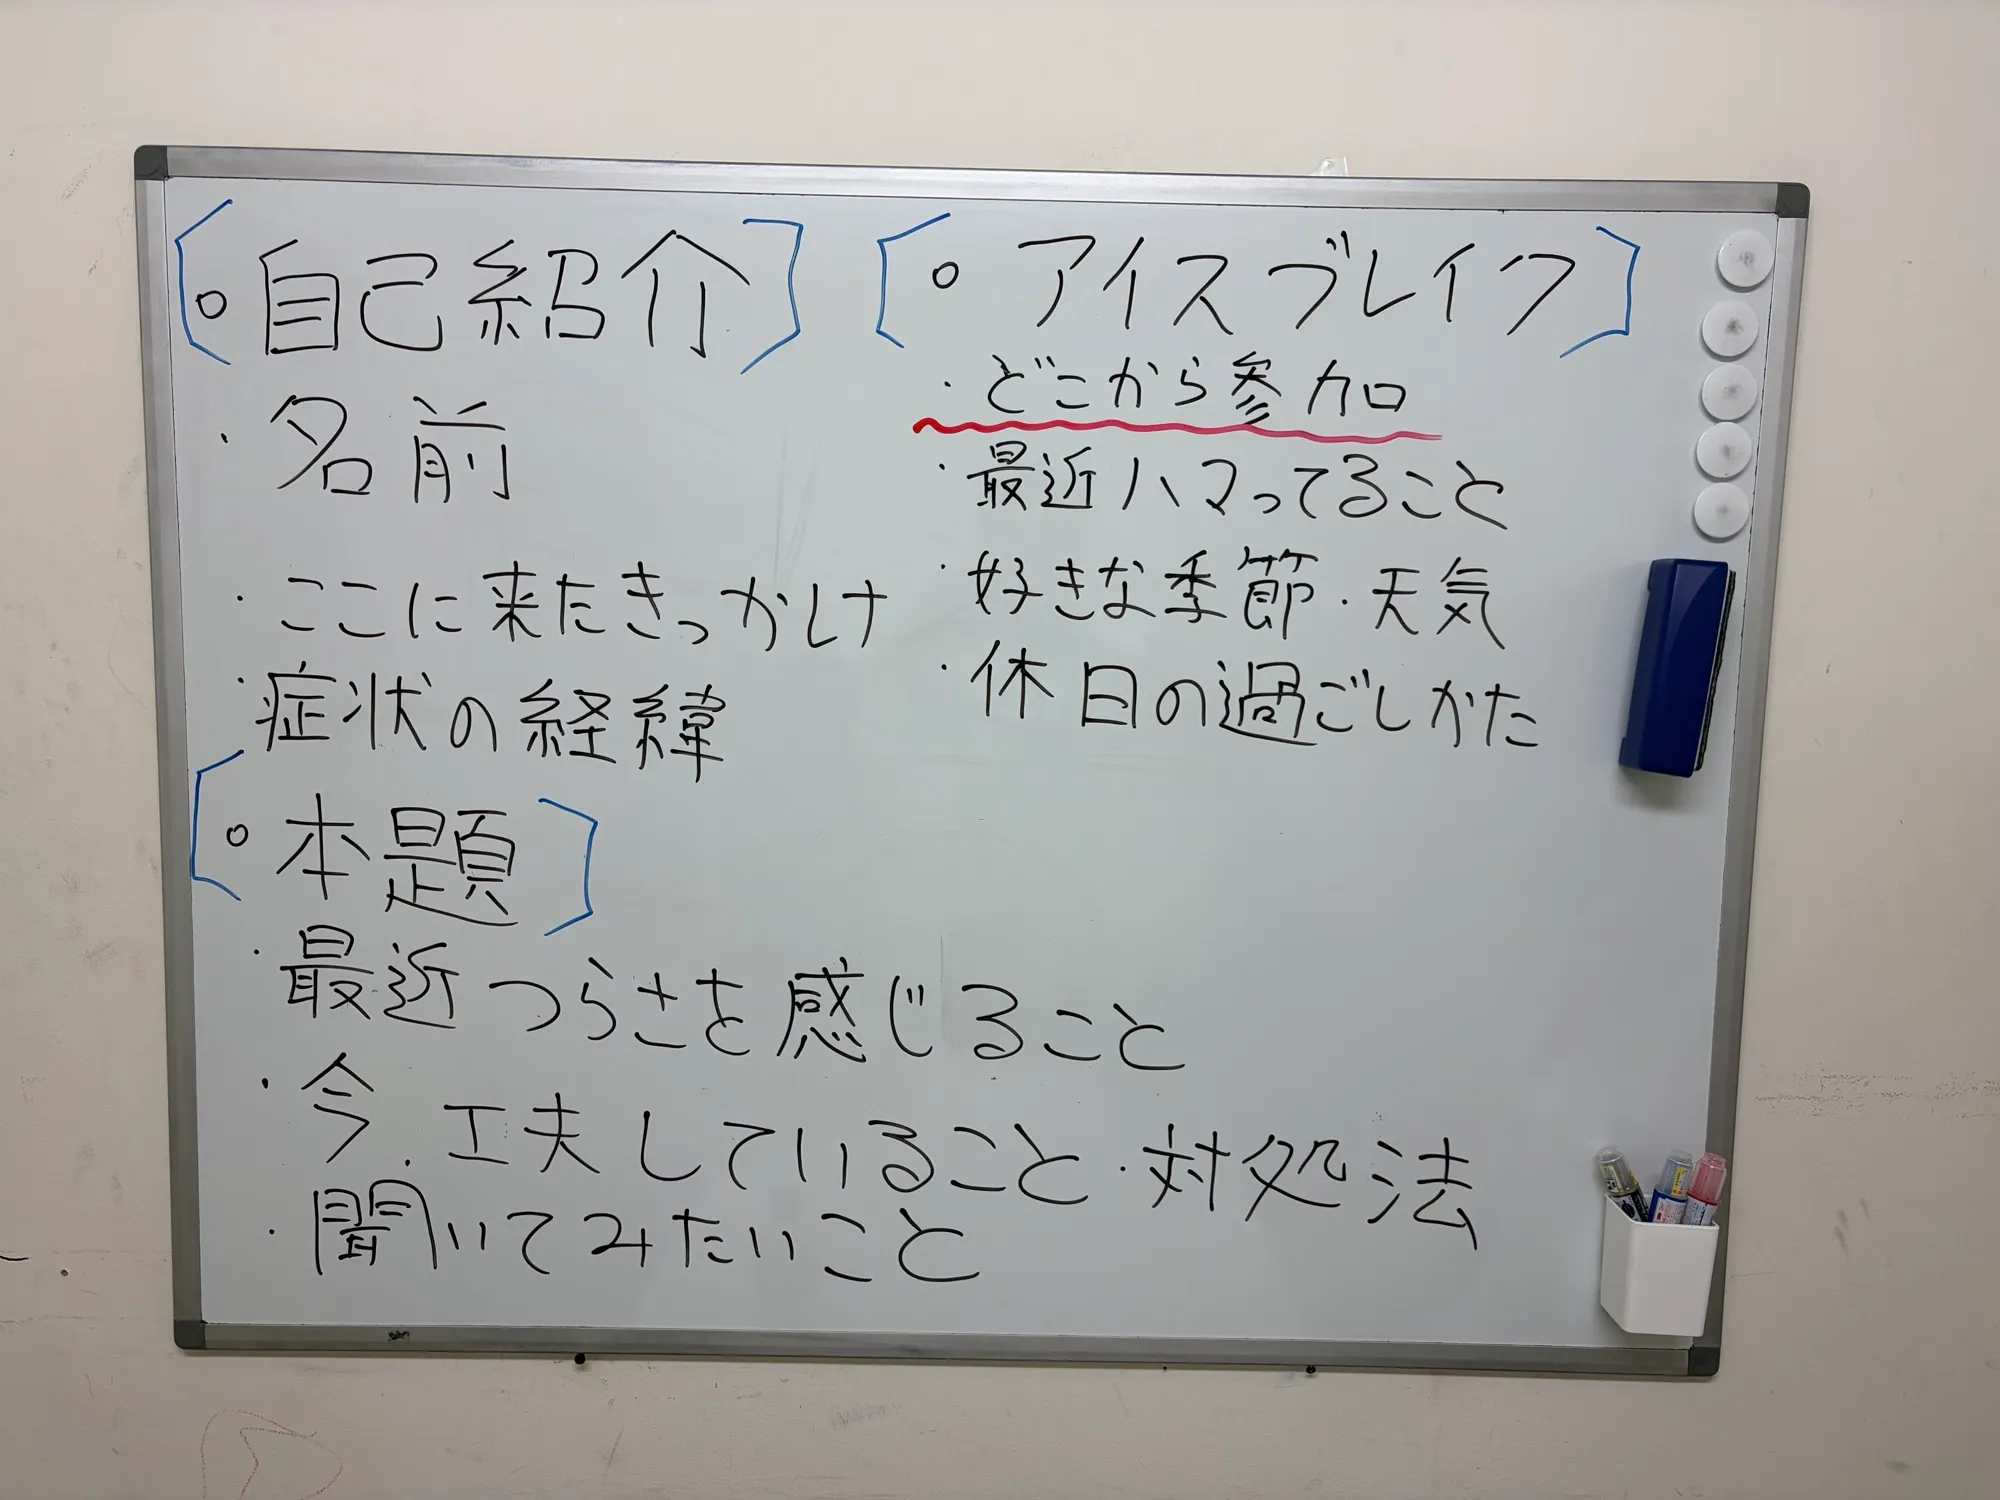 〔○ 自己紹介〕
・名前
・ここに来たきっかけ
・症状の経緯
〔○ アイスブレイク〕
・どこから参加
・最近ハマってること
・好きな季節・天気
・休日の過ごしかた
〔○ 本題〕
・最近つらさを感じること
・今、工夫していること・対処法
・聞いてみたいこと